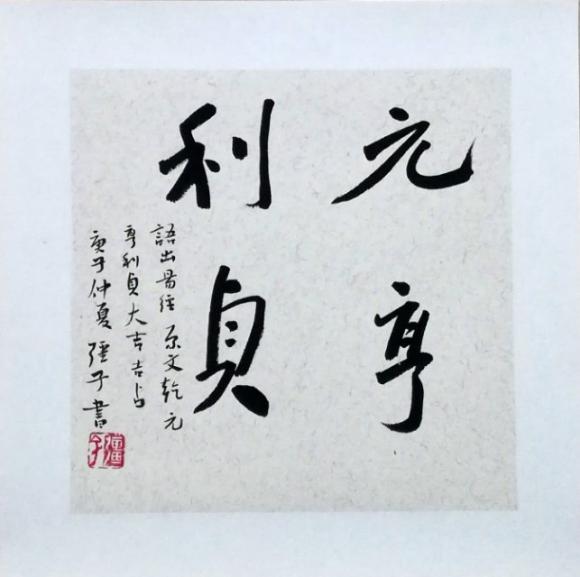 元亨
利貞
語出易經 原文乾元
亨利貞大吉吉占
庚子仲夏 子書